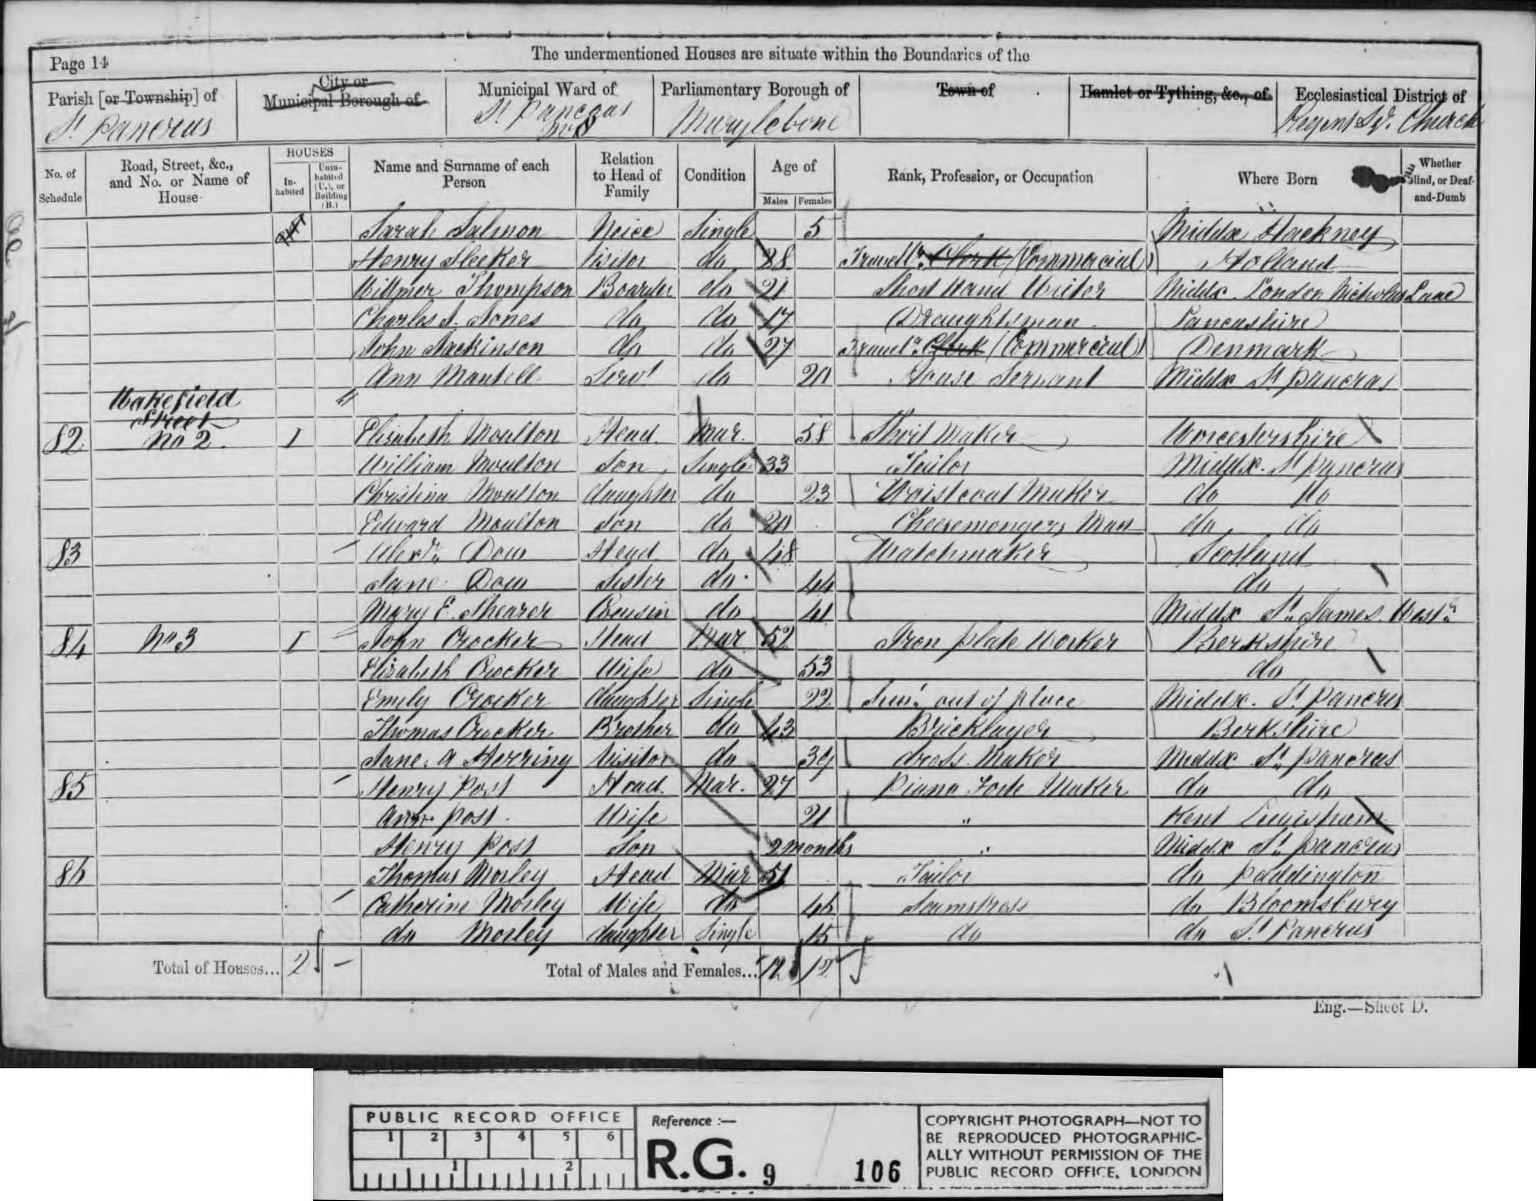 Page 14
The undermentioned Houses are situate within the Boundaries of the
Parish [or Township] of City or Municipal Borough of Municipal Ward of Parliamentary Borough of Town of Hamlet or Tything, &c., of Ecclesiastical District of
St Pancras St Pancras No 8 Marylebone Regent Sq. Church
No. of Schedule Road, Street, &c., and No. or Name of House HOUSES Inhabited Uninhabited (U.), or Building (B.) Name and Surname of each Person Relation to Head of Family Condition Age of Males Females Rank, Profession, or Occupation Where Born Whether Blind, or Deaf-and-Dumb
Sarah Salmon Neice Single 5 Middx Hackney
Henry Slecker Visitor do 28 Travellr. Clerk (Commercial) Holland
Willmer Thompson Boarder do 21 Short Hand Writer Middx London Nicholas Lane
Charles A. Jones do do 17 Draughtsman Lancashire
John Jackinson do do 27 Travelr. Clerk (Commercial) Denmark
Ann Mantell Servt do 20 House Servant Middx St Pancras
Wakefield Street
82 No 2. 1 Elizabeth Moulton Head Mar. 58 Shirt Maker Worcestershire
William Moulton Son Single 33 Tailor Middx. St Pancras
Christina Moulton daughter do 23 Waistcoat Maker do do
Edward Moulton Son do 20 Cheesemongers Man do do
83 Alexr. Dow Head do 48 Watchmaker Scotland
Jane Dow Sister do 44 do
Mary E. Shearer Cousin do 41 Middx St. James Westr
84 No 3 1 John Crocker Head Mar 52 Iron plate Worker Berkshire
Elizabeth Crocker Wife do 53 do
Emily Crocker daughter Single 22 Servt out of place Middx. St Pancras
Thomas Crocker Brother do 43 Bricklayer Berkshire
Jane A Herring Visitor do 39 dress Maker Middx St. Pancras
85 Henry Post Head Mar. 27 Piano Forte Maker do do
Ann Post. Wife 21 " Kent Lewisham
Henry Post Son 2 months " Middx St. Pancras
86 Thomas Morley Head Mar 51 Tailor do Paddington
Catherine Morley Wife do 46 Seamstress do Bloomsbury
do Morley daughter Single 15 do do St Pancras
Total of Houses... 2 – Total of Males and Females... 12 12
Eng.—Sheet D.
PUBLIC RECORD OFFICE
1 2 3 4 5 6
1 2
Reference :—
R.G. 9 106
COPYRIGHT PHOTOGRAPH—NOT TO
BE REPRODUCED PHOTOGRAPHIC-
ALLY WITHOUT PERMISSION OF THE
PUBLIC RECORD OFFICE, LONDON